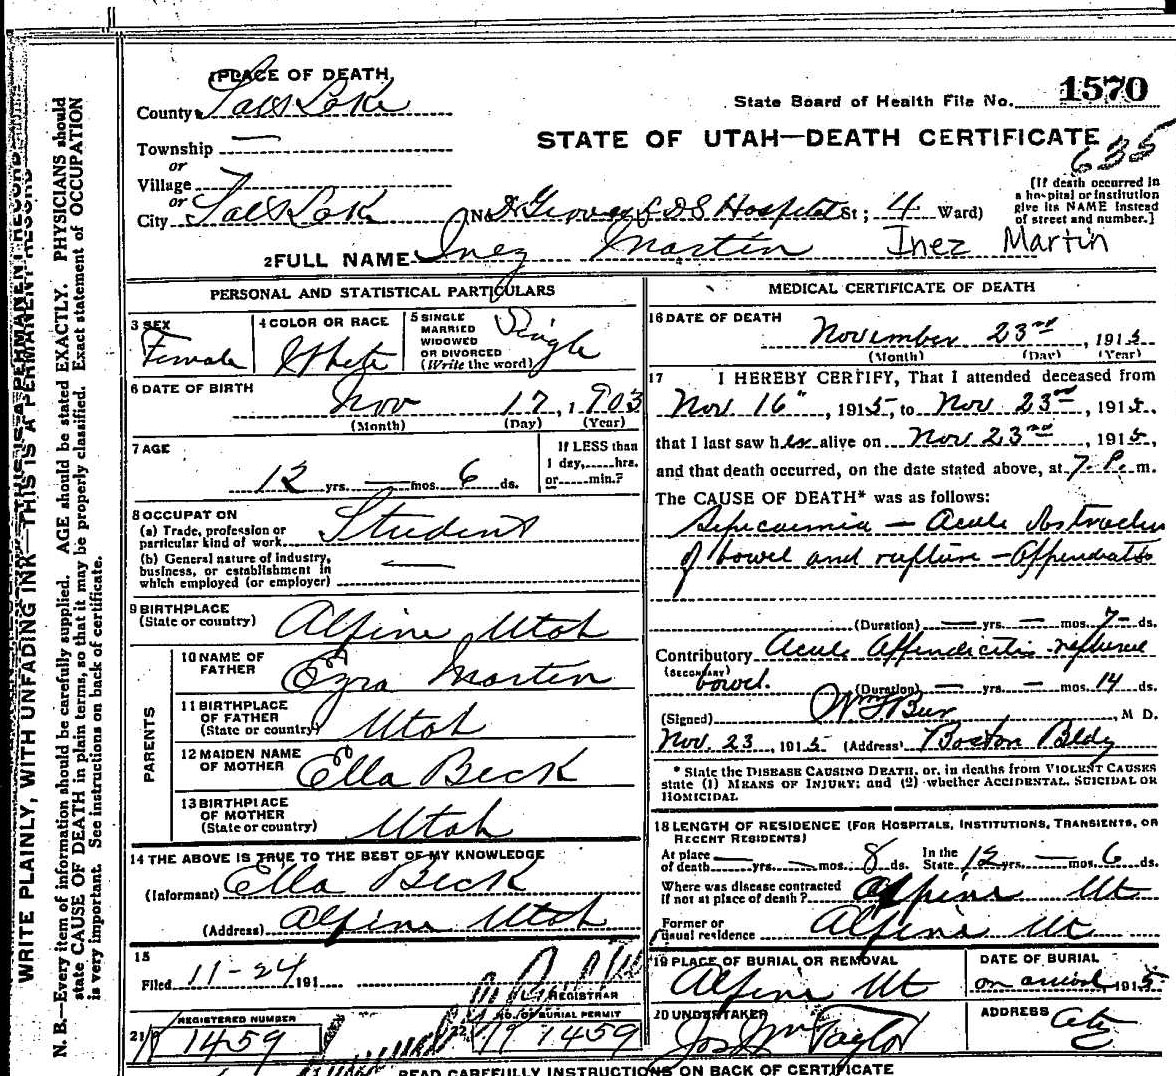 1 PLACE OF DEATH
County Salt Lake
State Board of Health File No. 1570
Township —
STATE OF UTAH—DEATH CERTIFICATE
635
or
Village
or
City Salt Lake (No. Dr Groves LDS Hospital St; 4 Ward)
[If death occurred in
a hospital or institution
give its NAME instead
of street and number.]
2 FULL NAME Inez Martin Inez Martin
PERSONAL AND STATISTICAL PARTICULARS
3 SEX
Female
4 COLOR OR RACE
White
5 SINGLE
MARRIED
WIDOWED
OR DIVORCED
(Write the word)
Single
6 DATE OF BIRTH
Nov 17, 1903
(Month) (Day) (Year)
7 AGE
12 yrs. — mos. 6 ds.
If LESS than
1 day,.....hrs.
or.....min.?
8 OCCUPATION
(a) Trade, profession or
particular kind of work Student
(b) General nature of industry,
business, or establishment in
which employed (or employer) —
9 BIRTHPLACE
(State or country) Alpine Utah
PARENTS
10 NAME OF
FATHER Ezra Martin
11 BIRTHPLACE
OF FATHER
(State or country) Utah
12 MAIDEN NAME
OF MOTHER Ella Beck
13 BIRTHPLACE
OF MOTHER
(State or country) Utah
14 THE ABOVE IS TRUE TO THE BEST OF MY KNOWLEDGE
(Informant) Ella Beck
(Address) Alpine Utah
15
Filed 11-24 191
REGISTRAR
21 REGISTERED NUMBER
1459
22 NO. OF BURIAL PERMIT
1459
MEDICAL CERTIFICATE OF DEATH
16 DATE OF DEATH
November 23rd, 1915
(Month) (Day) (Year)
17 I HEREBY CERTIFY, That I attended deceased from
Nov 16", 1915, to Nov 23rd, 1915,
that I last saw her alive on Nov 23rd, 1915,
and that death occurred, on the date stated above, at 7 P. m.
The CAUSE OF DEATH* was as follows:
Septicaemia — Acute Obstruction
of bowel and rupture — Appendicitis
(Duration) — yrs. — mos. 7 ds.
Contributory Acute Appendicitis ruptured
(SECONDARY) bowel.
(Duration) — yrs. — mos. 14 ds.
(Signed) Wm, M D.
Nov. 23, 1915 (Address) Boston Bldg
* State the DISEASE CAUSING DEATH, or, in deaths from VIOLENT CAUSES
state (1) MEANS OF INJURY; and (2) whether ACCIDENTAL, SUICIDAL OR
HOMICIDAL
18 LENGTH OF RESIDENCE (FOR HOSPITALS, INSTITUTIONS, TRANSIENTS, OR
RECENT RESIDENTS)
At place
of death — yrs. — mos. 8 ds. In the
State 12 yrs. — mos. 6 ds.
Where was disease contracted
if not at place of death? Alpine Ut
Former or
usual residence Alpine Ut
19 PLACE OF BURIAL OR REMOVAL
Alpine Ut
DATE OF BURIAL
on arrival, 1915
20 UNDERTAKER
Jos Wm Taylor
ADDRESS City
READ CAREFULLY INSTRUCTIONS ON BACK OF CERTIFICATE
WRITE PLAINLY, WITH UNFADING INK—THIS IS A PERMANENT RECORD
N. B.—Every item of information should be carefully supplied. AGE should be stated EXACTLY. PHYSICIANS should
state CAUSE OF DEATH in plain terms, so that it may be properly classified. Exact statement of OCCUPATION
is very important. See instructions on back of certificate.